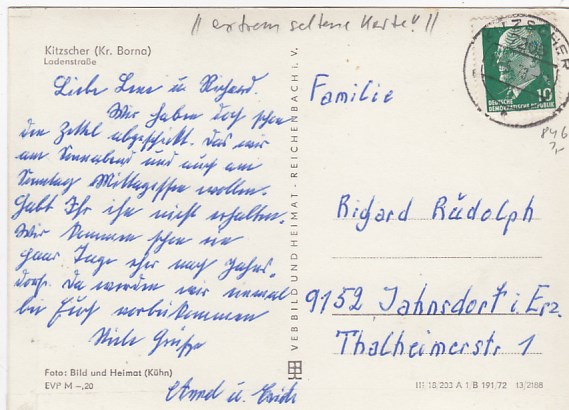 // extrem seltene Karte! //
Kitzscher (Kr. Borna)
Ladenstraße
Liebe Lene u. Richard.
Wir haben doch schon
den Zettel abgeschickt. Das wir
am Sonnabend und auch am
Sonntag Mittagessen wollen.
Habt Ihr ihn nicht erhalten.
Wir kommen schon ein
paar Tage eher nach Jahns-
dorf. Da werden wir einmal
bei Euch vorbeikommen
Viele Grüße
u. Erich
Foto: Bild und Heimat (Kühn)
EVP M –,20
VEB BILD UND HEIMAT · REICHENBACH I. V.
10
DEUTSCHE
DEMOKRATISCHE REPUBLIK
KITZSCHER
846
7,-
Familie
Richard Rudolph
9152 Jahnsdorf i. Erz.
Thalheimerstr 1
III 18/233 A 1 B 191/72 13/2188